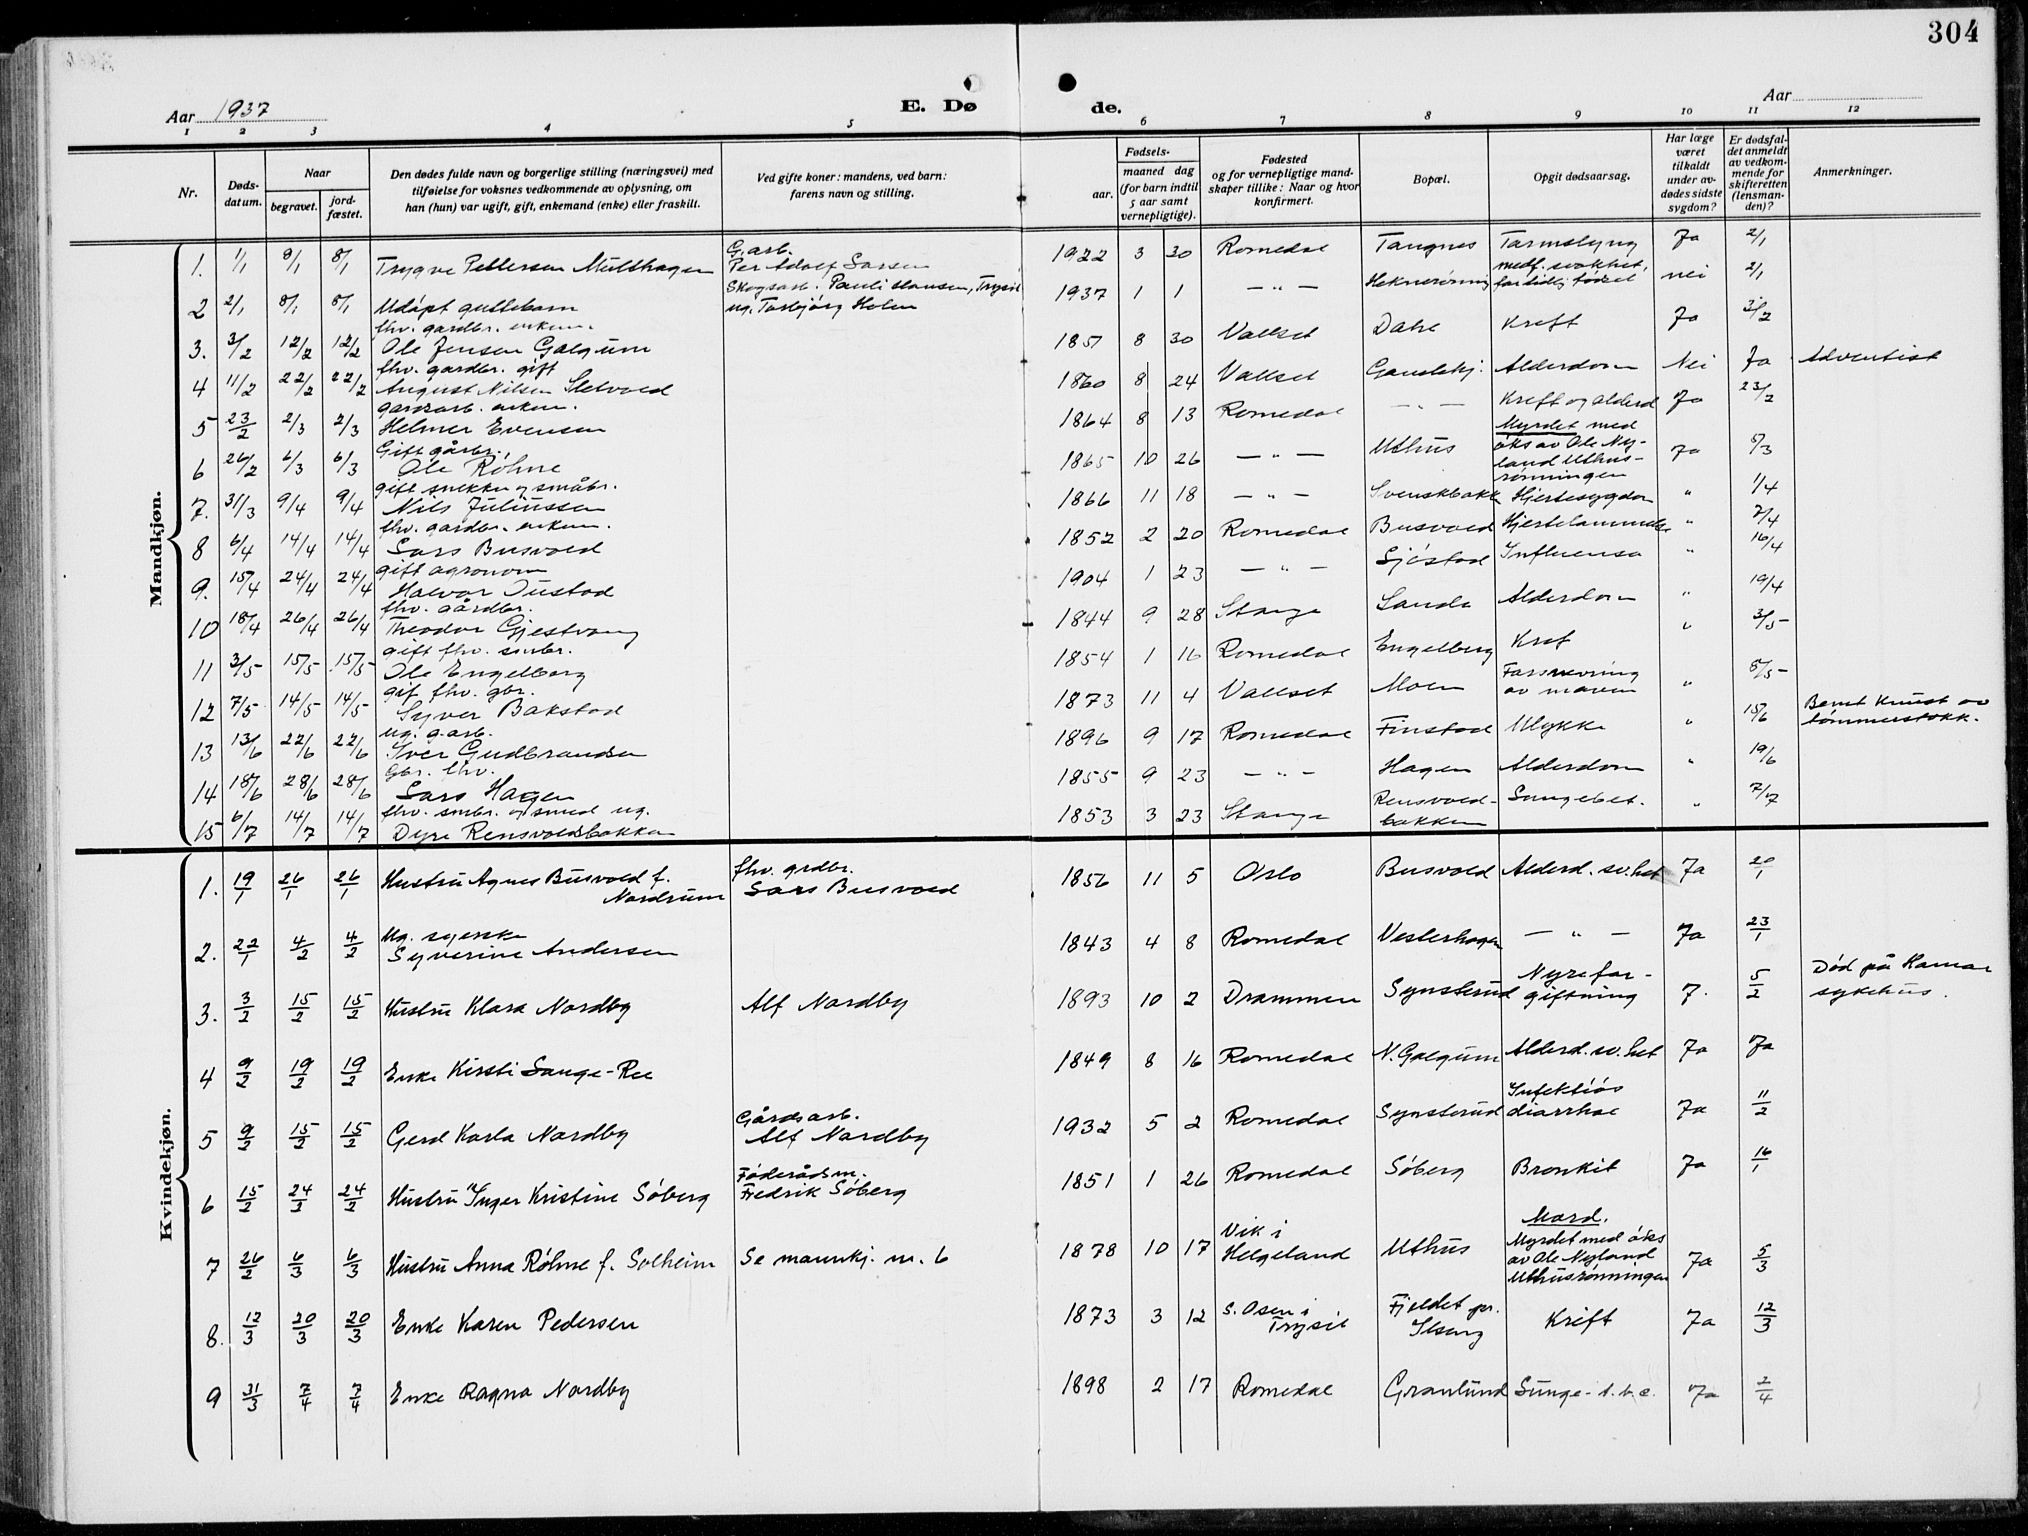 304
Aar 1937
E. Døde.
Aar
1 2 3 4 5 6 7 8 9 10 11 12
Nr.
Døds-datum.
Naar
begravet.
jord-fæstet.
Den dødes fulde navn og borgerlige stilling (næringsvei) med
tilføielse for voksnes vedkommende av oplysning, om
han (hun) var ugift, gift, enkemand (enke) eller fraskilt.
Ved gifte koner: mandens, ved barn:
farens navn og stilling.
Fødsels-
aar.
maaned dag
(for barn indtil
5 aar samt
vernepligtige).
Fødested
og for vernepligtige mand-
skaper tillike: Naar og hvor
konfirmert.
Bopæl.
Opgit dødsaarsag.
Har læge
været
tilkaldt
under av-
dødes sidste
sygdom?
Er dødsfal-
det anmeldt
av vedkom-
mende for
skifteretten
(lensman-
den)?
Anmerkninger.
Mandkjøn.
1. 1/1 9/1 8/1 Trygve Pettersen Multhagen G.arb. Per Adolf Larsen 1922 3 30 Romedal Tangnes Tarmslyng Ja 2/1
2 2/1 8/1 8/1 Udøpt guttebarn Skogsarb. Pauli Hansen, Trysil ug. Torbjørg Holen 1937 1 1 — " — medf. svakhet, for tidlig fødsel nei 2/1
3. 3/2 12/2 12/2 fhv. gardbr. enkem. Ole Jensen Galgum 1851 8 30 Vallset Dahl Kreft Ja 3/2
4 11/2 22/2 22/2 fhv. gardbr. gift August Nilsen Sletvold 1860 8 24 Vallset Alderdom Nei Ja Adventist
5 23/2 2/3 2/3 gardsarb. enkem. Helmer Evensen 1864 8 13 Romedal — " — Kreft og alderd Ja 23/2
6 26/2 6/3 6/3 Gift gårbr. Ole Røhne 1865 10 26 — " — Uthus Myrdet med øks av Ole Nyland Uthus-rønningen Ja 5/3
7. 31/3 9/4 9/4 gift snekker og småbr. Nils Juliussen 1866 11 18 — " — Svenskbakk Hjertesygdom " 1/4
8 6/4 14/4 14/4 fhv. gardbr. enkem. Lars Busvold 1852 2 20 Romedal Busvold Hjertelammelse " 7/4
9. 15/4 24/4 24/4 gift agronom Halvor Oustad 1904 1 23 — " — Sjøstad Influensa " 16/4
10 18/4 26/4 26/4 fhv. gårdbr. Theodor Gjestvang 1844 9 28 Stange Sande Alderdom " 19/4
11 3/5 15/5 15/5 gift fhv. smbr. Ole Engelberg 1854 1 16 Romedal Engelberg Kref " 3/5
12 7/5 14/5 14/5 gif fhv. gbr. Syver Bakstad 1873 11 4 Vallset Moen Forsnevring av maven " 8/5
13 13/6 22/6 22/6 ug. g.arb. Iver Gudbrandsen 1896 9 17 Romedal Finstad Ulykke " 15/6 Benet knust av tømmerstokk.
14 18/6 28/6 28/6 Gbr. fhv. Lars Hagen 1855 9 23 — " — Hagen Alderdom " 19/6
15 6/7 14/7 14/7 fhv. smbr. og smed ug. Dyre Rensvoldbakken 1853 3 23 Stange Rensvold-bakken Lungebet. " 7/7
Kvindekjøn.
1. 19/1 26/1 26/1 Hustru Agnes Busvold f. Nordrum fhv. grdbr. Lars Busvold 1856 11 5 Oslo Busvold Alderd. sv.het Ja 20/1
2. 22/1 4/2 4/2 Ug. syerske Syverine Andersen 1843 4 8 Romedal Vesterhagen — " — Ja 23/1
3. 3/2 15/2 15/2 Hustru Klara Nordby Alf Nordby 1893 10 2 Drammen Synsterud Nyrefor-giftning J. 5/2 Død på Hamar sykehus.
4 9/2 19/2 19/2 Enke Kirsti Lange-Ree 1849 8 16 Romedal N. Galgum Alderd. sv.het Ja Ja
5 9/2 15/2 15/2 Gerd Karla Nordby Gårdsarb. Alf Nordby 1932 5 2 Romedal Synsterud Infektiøs diarrhoe Ja 11/2
6 15/2 24/2 24/2 Hustru Inger Kristine Søberg Føderådsm. Fredrik Søberg 1851 1 26 Romedal Søberg Bronkit Ja 16/1
7 26/2 6/3 6/3 Hustru Anna Røhne f. Solheim Se mannkj. nr. 6 1878 10 17 Vik i Helgeland Uthus Mord. Myrdet med øks av Ole Nyland Uthusrønningen Ja 5/3
8. 12/3 20/3 20/3 Enke Karen Pedersen 1873 3 12 S. Osen i Trysil Fjeldet pr. Ilseng Kreft Ja 12/3
9 31/3 7/4 7/4 Enke Ragna Nordby 1898 2 17 Romedal Granlund Lunge-t.b.c. Ja 2/4